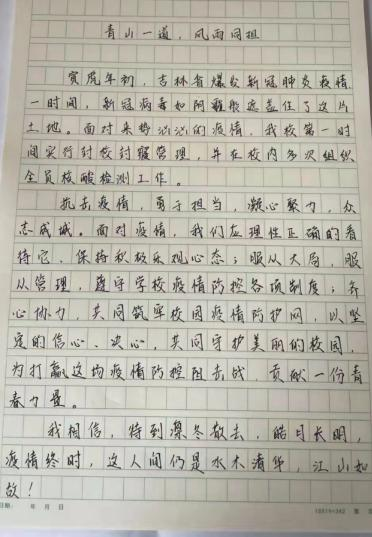 青山一道，风雨同担
寅虎年初，吉林省爆发新冠肺炎疫情，
一时间，新冠病毒如阴霾般遮盖住了这片
土地。面对来势汹汹的疫情，我校第一时
间实行封校封寝管理，并在校内多次组织
全员核酸检测工作。
抗击疫情，勇于担当，凝心聚力，众
志成城。面对疫情，我们应理性正确的看
待它，保持积极乐观心态；服从大局，服
从管理，遵守学校疫情防控各项制度；齐
心协力，共同筑牢校园疫情防护网，以坚
定的信心、决心，共同守护美丽的校园，
为打赢这场疫情防控阻击战，贡献一份青
春力量。
我相信，待到凛冬散去，皓月长明，
疫情终时，这人间仍是水木清华，江山如
故！
日期： 年 月 日